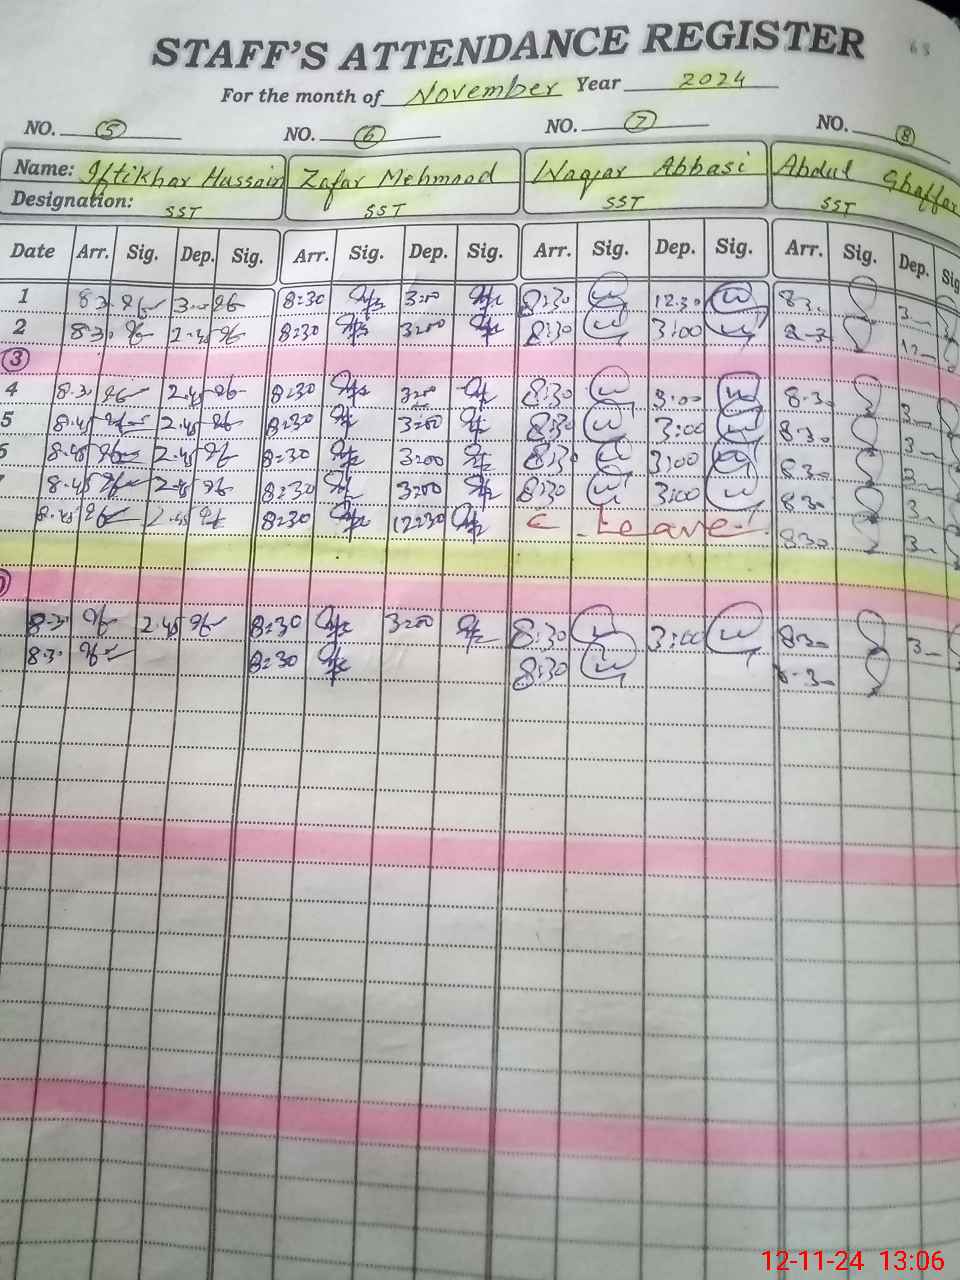 68
STAFF'S ATTENDANCE REGISTER
For the month of November Year 2024
NO. 5 NO. 6 NO. 7 NO. 8
Name: Iftikhar Hussain Zafar Mehmood Waqar Abbasi Abdul Ghaffar
Designation: SST SST SST SST
Date Arr. Sig. Dep. Sig. Arr. Sig. Dep. Sig. Arr. Sig. Dep. Sig. Arr. Sig. Dep. Sig
1 8.3. 3.- 8:30 3:00 8:30 12:30 8.3. 3-
2 8.3. 2.45 8:30 3:00 8:30 3:00 8-3- 12-
3
4 8.3. 2.45 8:30 3:00 8:30 3:00 8.3. 3-
5 8.45 2.45 8:30 3:00 8:30 3:00 8.3. 3-
8.45 2.45 8:30 3:00 8:30 3:00 8.3. 3-
8.45 2.45 8:30 3:00 8:30 3:00 8.30 3-
8.45 2.45 8:30 12:30 Leave 830 3-
8.3. 2.45 8:30 3:00 8:30 3:00 8.30 3-
8.3. 8:30 8:30 8.3-
12-11-24 13:06